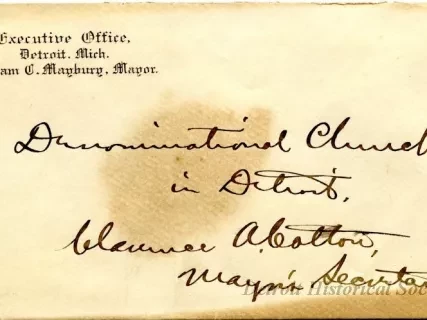 Executive Office,
Detroit. Mich.
am C. Maybury, Mayor.
Denominational Church
in Detroit,
Clarence A. Cotton,
Mayor's Secreta
Detroit Historical Soc